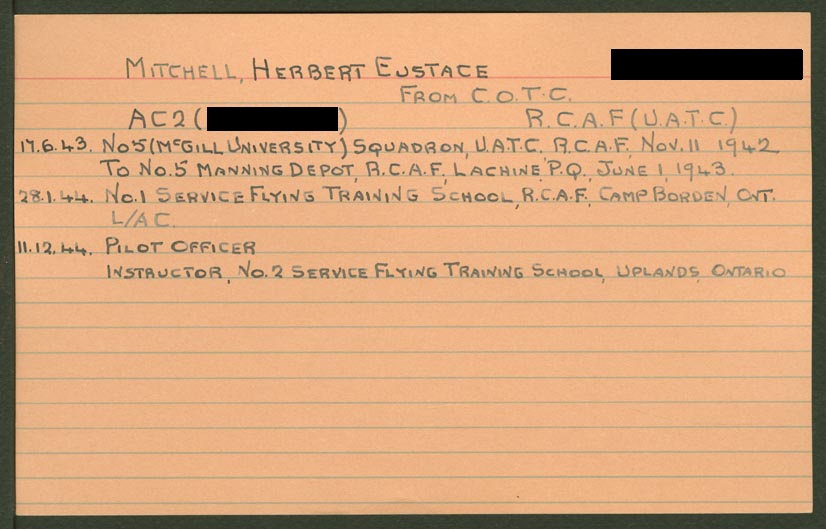 MITCHELL, HERBERT EUSTACE
FROM C.O.T.C.
AC2 ( ) R.C.A.F (U.A.T.C.)
17.6.43. NO5 (MCGILL UNIVERSITY) SQUADRON, U.A.T.C. R.C.A.F. NOV. 11 1942
TO NO.5 MANNING DEPOT, R.C.A.F, LACHINE, P.Q., JUNE 1, 1943.
28.1.44. NO.1 SERVICE FLYING TRAINING SCHOOL, R.C.A.F. CAMP BORDEN, ONT.
L/AC.
11.12.44. PILOT OFFICER
INSTRUCTOR, NO.2 SERVICE FLYING TRAINING SCHOOL, UPLANDS, ONTARIO